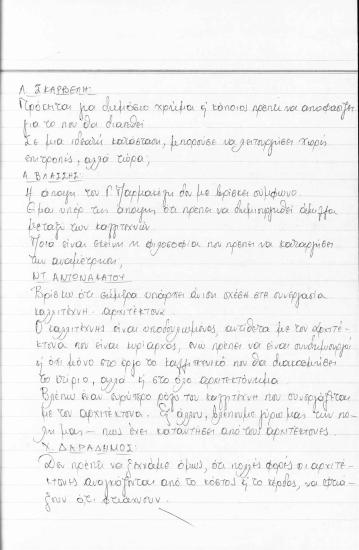 Λ. ΣΚΑΡΒΕΛΗ:
Πρόκειται για δημόσιο χρήμα ή κάποιος πρέπει να αποφασίζει
για το που θα διατεθεί
Σε μια ιδανική κατάσταση, μπορούσε να λειτουργήσει χωρίς
επιτροπές, αλλά τώρα;
Α. ΒΛΑΣΣΗΣ:
Η άποψη του Γ. Παρμακέλη δεν με βρίσκει σύμφωνο.
Είμαι υπέρ της άποψης, ότι πρέπει να δημιουργηθεί άμιλλα
μεταξύ των καλλιτεχνών.
Ποιά είναι εκείνη η φιλοσοφία που πρέπει να καταργήσει
την αναμέτρηση;
ΝΤ. ΑΝΤΩΝΑΚΑΤΟΥ:
Βρίσκω ότι σήμερα υπάρχει άνιση σχέση στη συνεργασία
καλλιτέχνη - αρχιτέκτονα.
Ο καλλιτέχνης είναι υποδουλωμένος, αντίθετα με τον αρχιτέ-
κτονα που είναι κυρίαρχος, ενώ πρέπει να είναι συνδημιουργοί
ή όχι μόνο στο έργο το καλλιτεχνικό που θα διακοσμήσει
το κτίριο, αλλά ή στο όλο αρχιτεκτόνημα.
Βλέπω έναν ευρύτερο ρόλο του καλλιτέχνη που συνεργάζεται
με τον αρχιτέκτονα. Εξ άλλου, βλέπουμε γύρω μας την πό-
λη μας - πως έχει καταντήσει από τους αρχιτέκτονες.
Χ. ΔΑΡΑΔΗΜΟΣ:
Δεν πρέπει να ξεχνάμε όμως, ότι πολλές φορές οι αρχιτέ-
κτονες αναγκάζονται από το κόστος ή το κέρδος, να φτιά-
ξουν ότι φτιάχνουν.